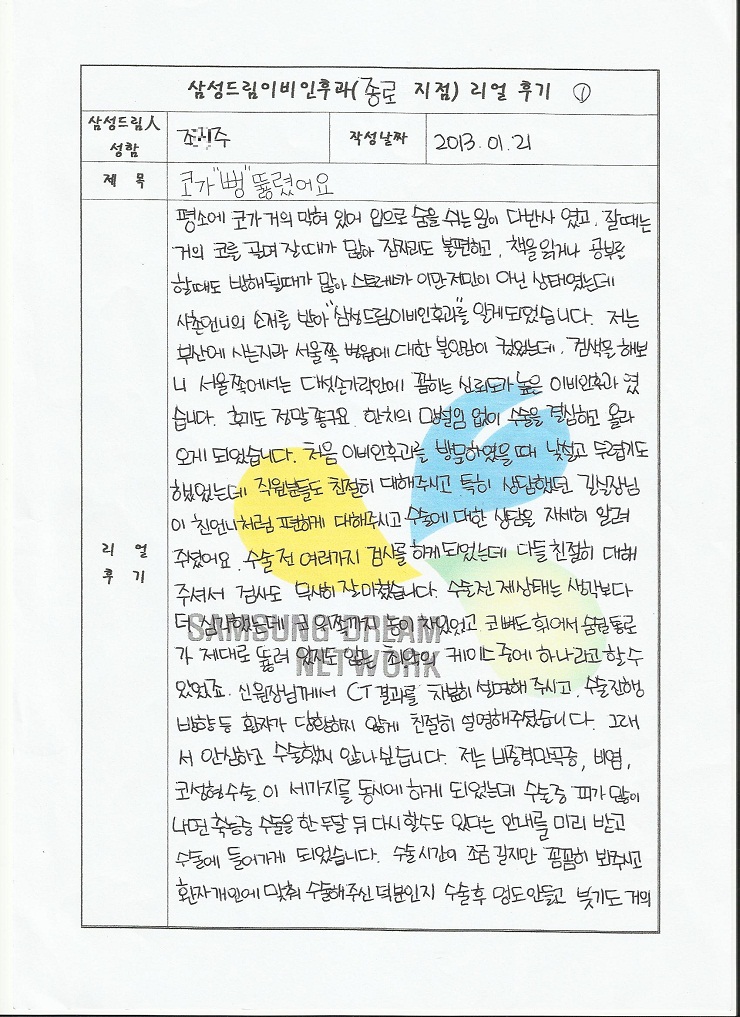 삼성드림이비인후과(종로 지점) 리얼 후기 ①
삼성드림人
성함
작성날짜
2013.01.21
제 목
코가 "뻥" 뚫렸어요
리 얼
후 기
평소에 코가 거의 막혀 있어 입으로 숨을 쉬는 일이 다반사 였고, 잘때는
거의 코를 골며 잘때가 많아 잠자리도 불편하고, 책을 읽거나 공부를
할때도 방해될때가 많아 스트레스가 이만저만이 아닌 상태였는데
사촌언니의 소개를 받아 "삼성드림이비인후과"를 알게되었습니다. 저는
부산에 사는지라 서울쪽 병원에 대한 불안감이 컸었는데, 검색을 해보
니 서울쪽에서는 다섯손가락안에 꼽히는 신뢰도가 높은 이비인후과 였
습니다. 후기도 정말 좋구요. 한치의 망설임 없이 수술을 결심하고 올라
오게 되었습니다. 처음 이비인후과를 방문하였을 때 낯설고 두렵기도
했었는데 직원분들도 친절히 대해주시고 특히 상담했던 김실장님
이 친언니처럼 편하게 대해주시고 수술에 대한 상담을 자세히 알려
주셨어요. 수술 전 여러가지 검사를 하게 되었는데 다들 친절히 대해
주셔서 검사도 무사히 잘 마쳤습니다. 수술전 제상태는 생각보다
더 심각했는데 코 안쪽까지 농이 차있었고 코뼈도 휘어서 숨쉴 통로
가 제대로 뚫려 있지도 않는 최악의 케이스 중에 하나라고 할수
있었죠. 신원장님께서 CT 결과를 차분히 설명해 주시고, 수술진행
방향 등 환자가 당황하지 않게 친절히 설명해주셨습니다. 그래
서 안심하고 수술했지 않나 싶습니다. 저는 비중격만곡증, 비염,
코성형수술 이 세가지를 동시에 하게 되었는데 수술중 피가 많이
나면 축농증 수술을 한 두달 뒤 다시 할수도 있다는 안내를 미리 받고
수술에 들어가게 되었습니다. 수술시간이 조금 길지만 꼼꼼히 봐주시고
환자개인에 맞춰 수술해주신 덕분인지 수술후 멍도 안들고 붓기도 거의
SAMSUNG DREAM
NETWORK